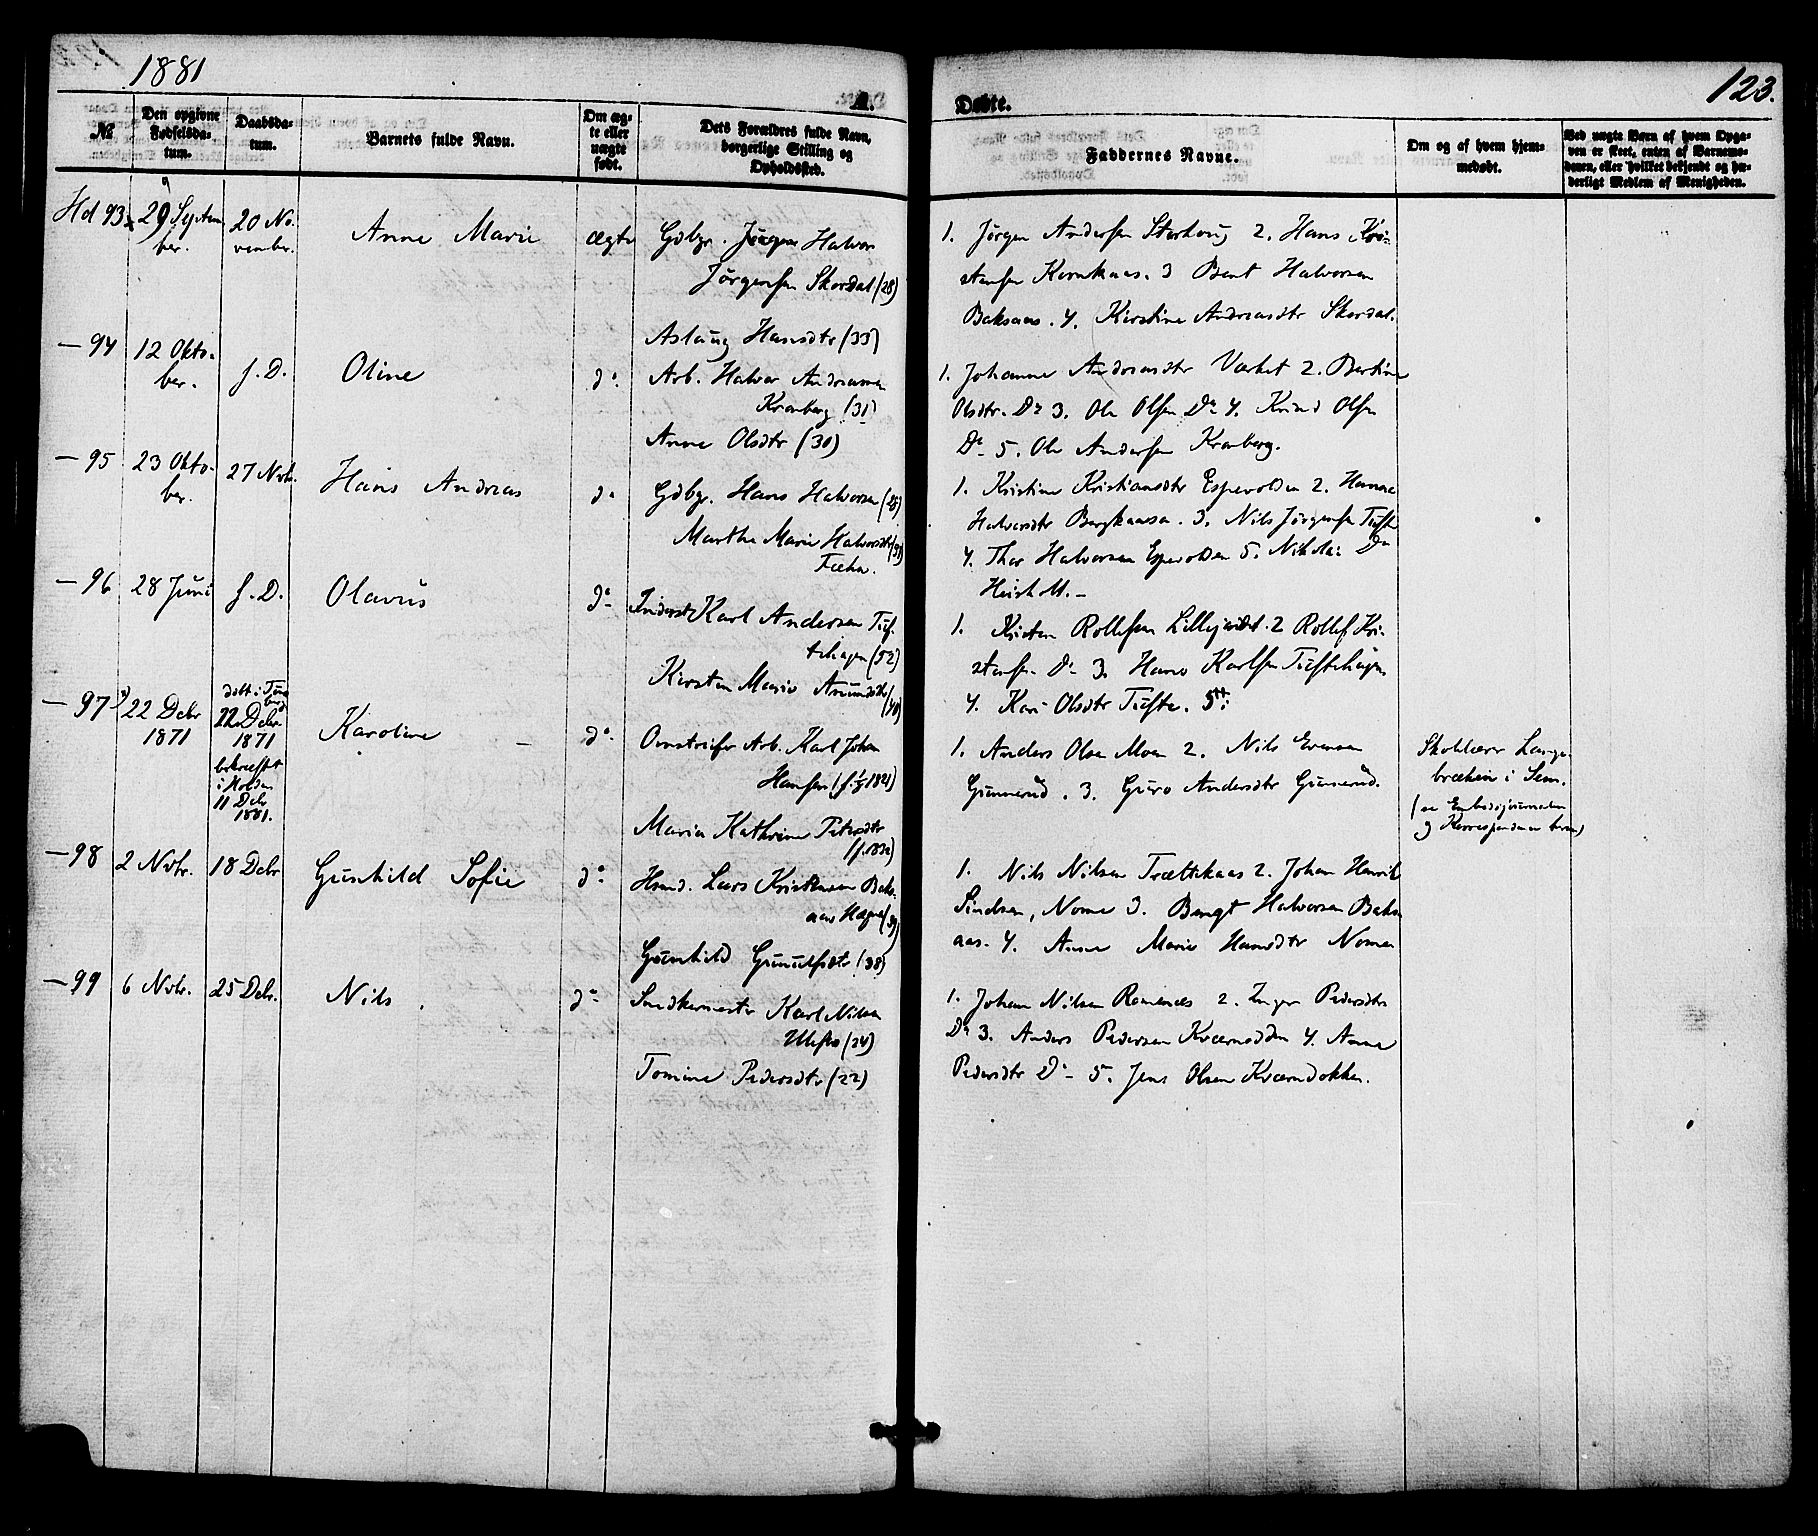 1881
123.
A.
Døbte.
№
Den opgivne Fødselsdatum.
Daabsdatum.
Barnets fulde Navn.
Om ægte eller uægte født.
Dets Forældres fulde Navn, borgerlige Stilling og Opholdsted.
Faddernes Navne.
Om og af hvem hjemmedøbt.
Ved uægte Børn af hvem Opgaven er skeet, enten af Barnemoderen, eller hvilket bekjendt og hæderligt Medlem af Menigheden.
Hd 93 29 Septem 20 No- Anne Marie ægte Gdbgr. Halvor
ber. vember.
Jørgensen Skordal (28)
Aslaug Hansdtr (33)
1. Jørgen Andersen 2. Hans Kri-
stensen Kornkaas. 3 Bent Halvorsen
Baksaas. 4. Kirstine Andreasdtr Skordal.
— 94 12 Okto- f. D. Oline do. Arb. Halvor Andreasen
ber. Kronberg (31)
Anne Olsdtr (30)
1. Johanne Andreasdtr Værket 2. Bertine
Olsdtr. Do 3. Ole Olsen Do 4. Olsen
Do 5. Ole Andersen Kronberg.
— 95 23 Okto- 27 Nvbr. Hans Andreas do Gdbgr. Hans Halvorsen (28)
ber.
Marthe Marie Halvorsdtr
1. Kristine Kristiansdtr Espevolden 2. Hanne
Halvorsdtr Bergkaasa. 3. Nils Jørgensen Tufte
4. Thor Halvorsen Espevolden 5. Nikolai Do
— 96 28 Juni f. D. Olavus do Inderst Karl Andersen Tuf-
tehagen (52)
Kirsten Marie (40)
1. Kisten Rollefsen 2 Rollef Kri-
stensen Do 3. Hans Karlsen Tuftehagen
4. Kari Olsdtr Tufte.
— 97 22 Debr døbt i Tøns
1871 berg
22 Debr
1871
bekræftet
i Holden
11 Debr
1881.
Karoline do Omstreifer Arb. Karl Johan
Hansen
Maria Kathrine Petersdtr
1. Anders Olsen Moen 2. Nils Evensen
Gunnerud. 3. Guro Andersdtr Gunnerud.
Skolelærer Lange-
brækken i Sem.
(se Embedsjournalen
og
— 98 2 Nvbr. 18 Debr Gunhild Sofie do Hsmd. Lars Kristensen Baks-
aas
Gunhild Gunulfsdtr (38)
1. Nils Nilsen Trættekaas 2. Johan Henrik
Nome 3. Bengt Halvorsen Baks-
aas. 4. Anne Marie Hansdtr Nomen
— 99 6 Nvbr. 25 Debr. Nils do Snedkermester Karl Nilsen
Ulefos (24)
Tomine Pedersdtr (22)
1. Johan Nilsen Romenæs 2. Inger Pedersdtr
Do 3. Anders Pedersen Kværnodden 4. Anne
Pedersdtr Do 5. Jens Olsen Kværndokken.